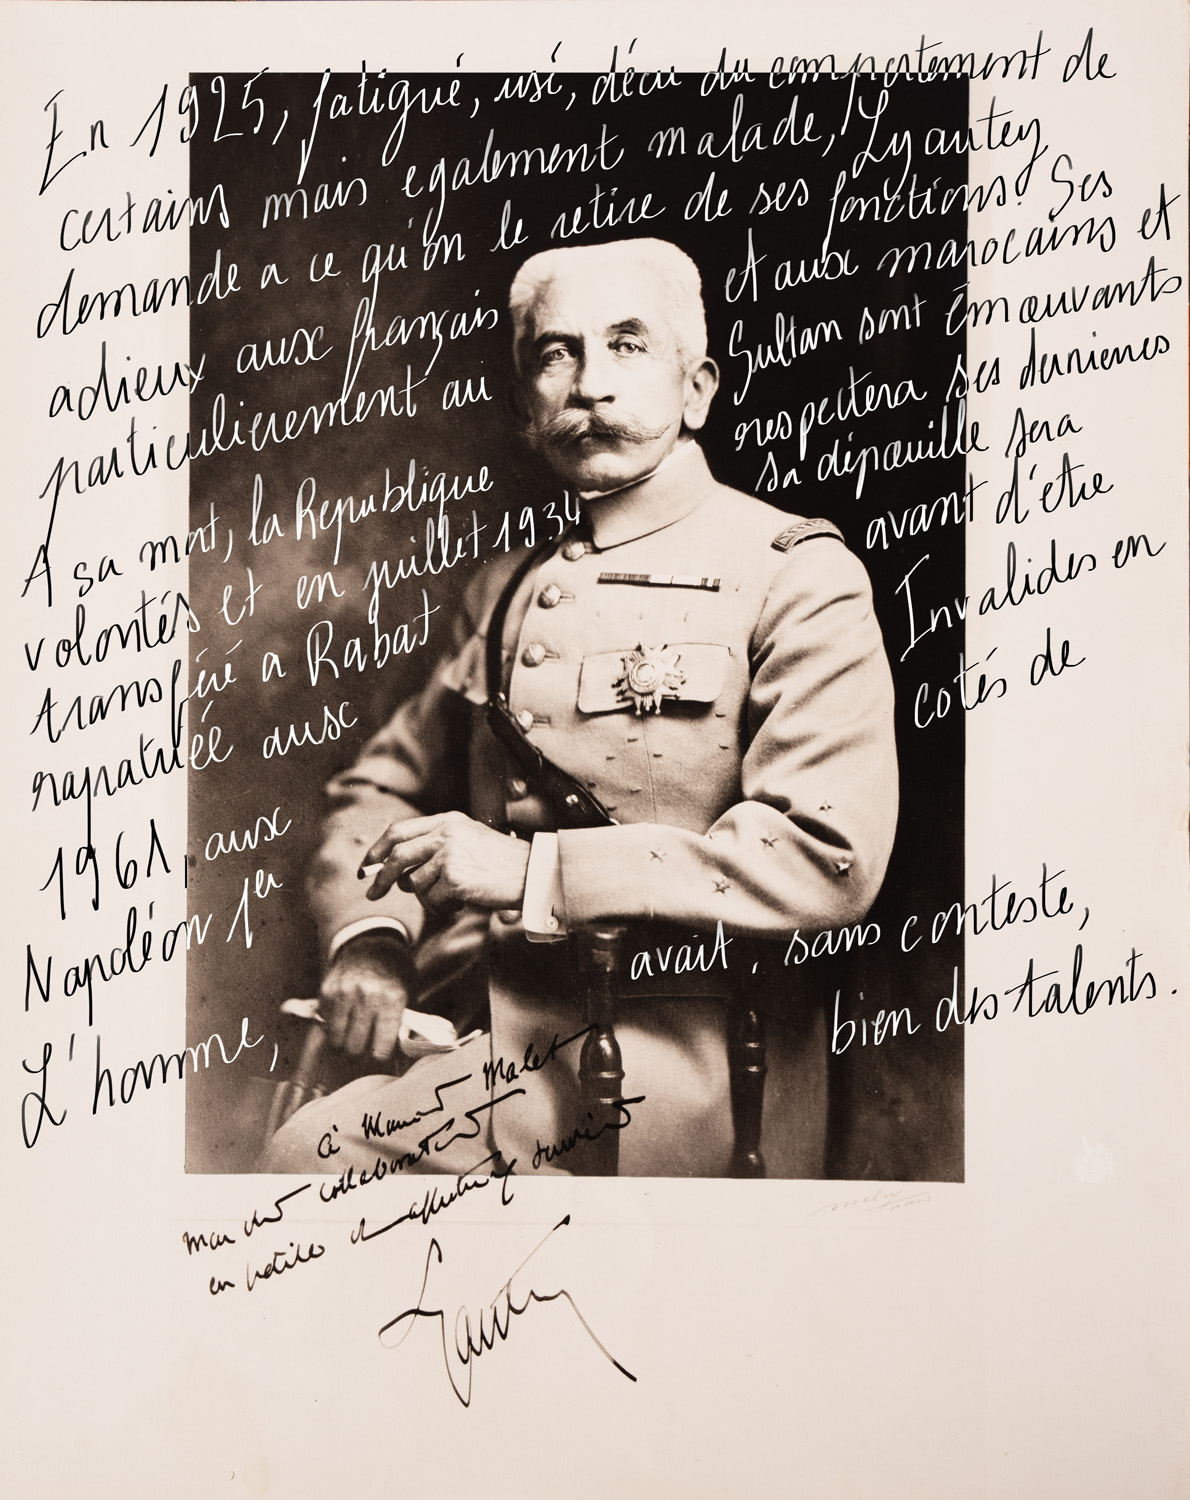 En 1925, fatigué, usé, déçu du comportement de
certains mais egalement malade, Lyautey
demande a ce qu'on le retire de ses fonctions. Ses
adieux aux français et aux marocains et
particulierement au Sultan sont émouvants
A sa mort, la Republique respectera ses dernieres
volontés et en juillet 1934 sa dépouille sera
transféré a Rabat avant d'être
rapatriée aux Invalides en
1961, aux cotés de
Napoléon 1er
L'homme, avait, sans conteste,
bien des talents.
à Malet
mon collaborateur
en souvenir
Lyautey